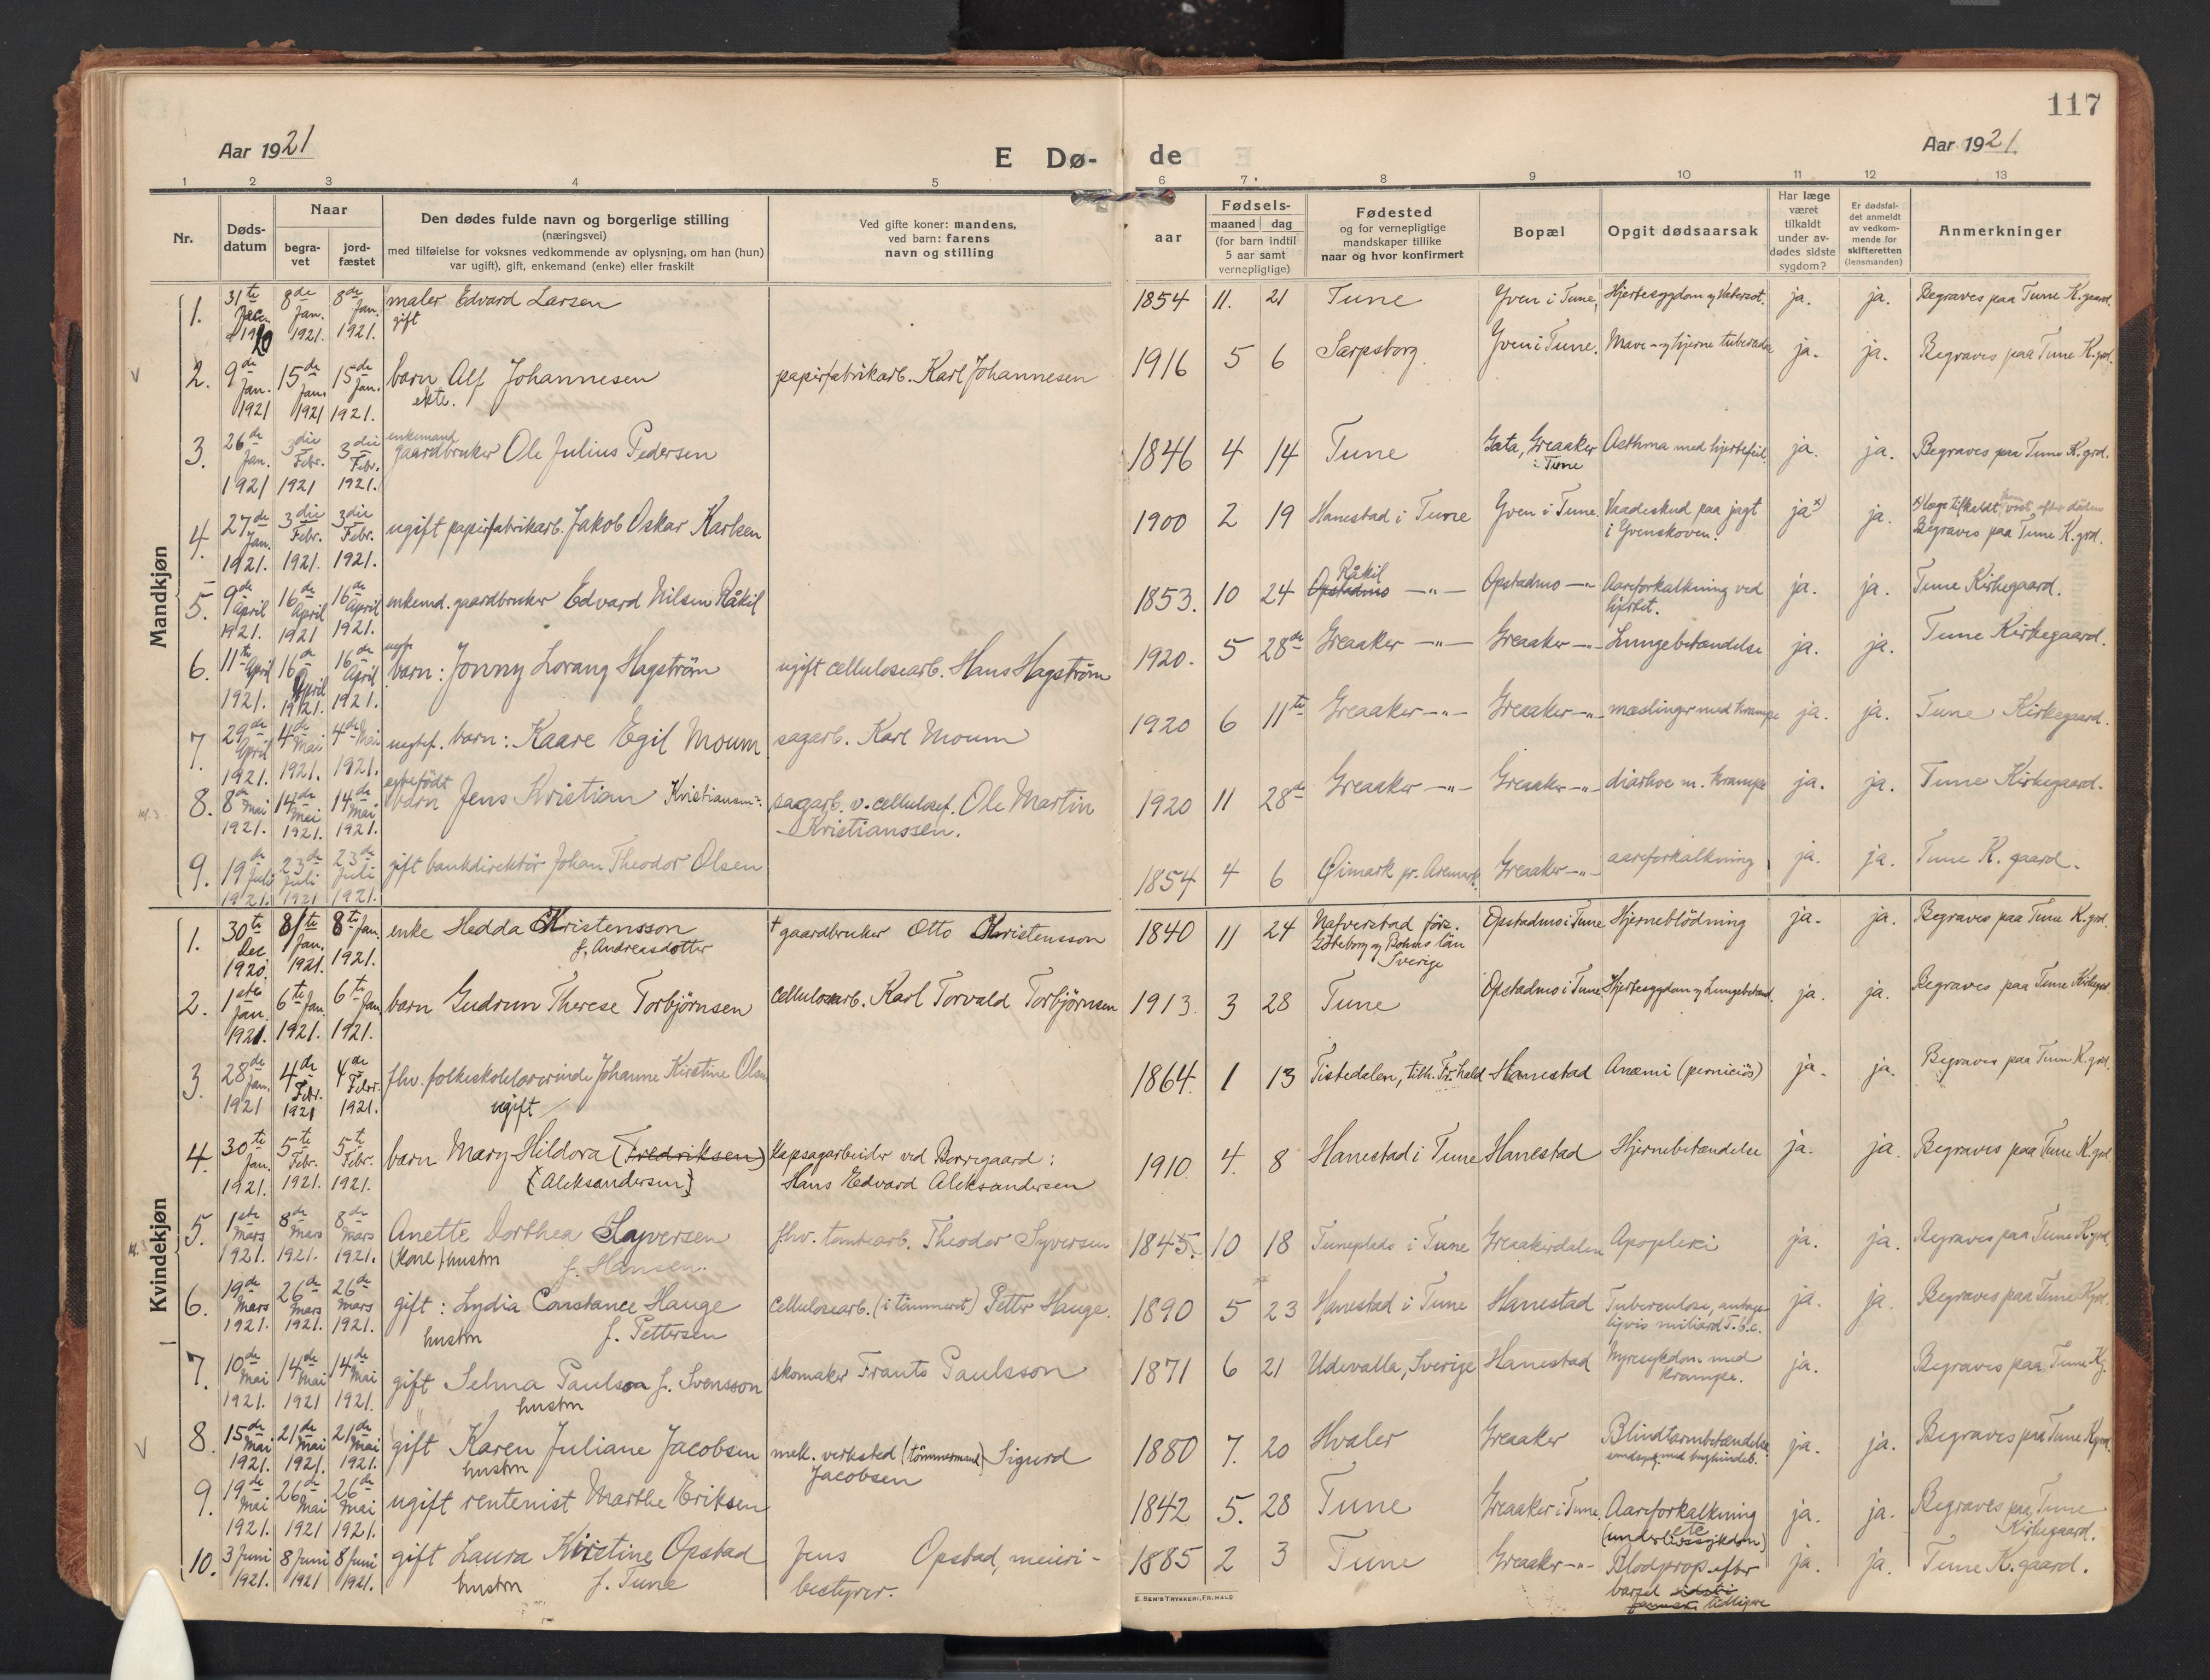 117
Aar 1921
E Dø-
de
Aar 1921.
1 2 3 4 5 6 7 8 9 10 11 12 13
Nr.
Døds-
datum
Naar
begra-
vet
jord-
fæstet
Den dødes fulde navn og borgerlige stilling
(næringsvei)
med tilføielse for voksnes vedkommende av oplysning, om han (hun)
var ugift), gift, enkemand (enke) eller fraskilt
Ved gifte koner: mandens,
ved barn: farens
navn og stilling
aar
Fødsels-
maaned dag
(for barn indtil
5 aar samt
vernepligtige)
Fødested
og for vernepligtige
mandskaper tillike
naar og hvor konfirmert
Bopæl
Opgit dødsaarsak
Har læge
været
tilkaldt
under av-
dødes sidste
sygdom?
Er dødsfal-
det anmeldt
av vedkom-
mende for
skifteretten
(lensmanden)
Anmerkninger
Mandkjøn
1. 31te Decr. 1920 8de Jan. 1921. 8de Jan. 1921. maler Edvard Larsen 1854 11. 21 Tune Yven i Tune, Hjertesygdom og Vatersot. ja. ja. Begraves paa Tune K.gaard.
gift
2. 9de Jan. 1921 15de Jan. 1921 15de Jan. 1921. barn Alf Johannesen papirfabrikarb. Karl Johannesen 1916 5 6 Sarpsborg. Yven i Tune. Mave- og hjerne tuberculose ja. ja. Begraves paa Tune K.grd.
ekte.
3. 26de Jan. 1921 3die Febr. 1921 3die Febr. 1921. enkemand gaardbruker Ole Julius Pedersen 1846 4 14 Tune Gata, Greaaker i Tune Asthma med hjertefeil ja. ja. Begraves paa Tune K.grd.
4. 27de Jan. 1921. 3die Febr. 1921. 3die Febr. 1921. ugift papirfabrikarb. Jakob Oskar Karlsen 1900 2 19 Hanestad i Tune Yven i Tune. Vaadeskud paa jagt ja x) ja. x) Læge tilkaldt, efter døden
i Yvenskoven. Begraves paa Tune K.grd.
5. 9de April 1921. 16de April 1921 16de April 1921. enkemd. gaardbruker Edvard Nilsen Råkil 1853. 10 24 Opstadmo Råkil —"— Opstadmo —"— Aareforkalkning ved ja. ja. Tune Kirkegaard.
hjertet.
6. 11te April 1921. 16de April 1921. 16de April 1921. barn: Jonny Lorang Hagstrøm ugift cellulosearb. Hans Hagstrøm 1920. 5 28de Greaaker —"— Greaaker —"— Lungebetændelse ja. ja. Tune Kirkegaard.
7. 29de April 1921. 4de Mai 1921. 4de Mai 1921. barn: Kaare Egil Moum sagarb. Karl Moum 1920 6 11te Greaaker —"— Greaaker —"— mæslinger med krampe ja. ja. Tune Kirkegaard.
8. 8de Mai 1921. 14de Mai 1921. 14de Mai 1921. egtefødt barn Jens Kristian Kristiansen sagarb. v. cellulosef. Ole Martin 1920 11 28de Greaaker —"— Greaaker —"— diarhoe m. krampe ja. ja. Tune Kirkegaard.
Kristianssen.
9. 19de Juli 1921. 23de Juli 1921 23de Juli 1921. gift bankdirektör Johan Theodor Olsen 1854 4 6 Øimark pr. Aremark. Greaaker —"— aareforkalkning ja. ja. Tune K. gaard.
Kvindekjøn
1. 30te Dec. 1920. 8te Jan. 1921. 8te Jan. 1921. enke Hedda Kristensson † gaardbruker Otto Kristensson 1840 11 24 Nafverstad förs. Opstadmo i Tune Hjerneblödning ja. ja. Begraves paa Tune K.grd.
f. Andreasdotter Göteborg og Bohus län
Sverige
2. 1ste Jan. 1921. 6te Jan. 1921. 6te Jan. 1921. barn Gudrun Therese Torbjörnsen Cellulosearb. Karl Torvald Torbjörnsen 1913. 3 28 Tune Opstadmo i Tune Hjertesygdom og Lungebetænd. ja. ja. Begraves paa Tune Kirkegrd.
3. 28de Jan. 1921 4de Febr. 1921 4de Febr. 1921. fhv. folkeskolelærerinde Johanne Kirstine Olsen 1864. 1 13 Tistedalen, tilh. Fr.hald Hanestad Anæmi (perniciös) ja. ja. Begraves paa Tune K.grd.
ugift
4. 30te Jan. 1921. 5te Febr. 1921. 5te Febr. 1921. barn Mary Hildora (Fredriksen) Kapsagarbeider ved Borregaard: 1910. 4. 8 Hanestad i Tune Hanestad Hjernebetændelse ja. ja. Begraves paa Tune K.grd
(Aleksandersen) Hans Edvard Aleksandersen
5. 1ste Mars 1921. 8de Mars 1921. 8de Mars 1921. Anette Dorthea Syversen fhv. tomtearb. Theodor Syversen 1845. 10 18 Tunepleds i Tune Greaakerdalen Apopleksi ja. ja. Begraves paa Tune K.grd.
(kone) hustru f. Hansen.
6. 19de Mars 1921. 26de Mars 1921. 26de Mars 1921. gift: Lydia Constance Hauge Cellulosearb. (i tömmeret) Petter Hauge. 1890 5 23 Hanestad i Tune Hanestad Tuberculose, antage- ja. ja. Begraves paa Tune K.grd.
hustru f. Pettersen ligvis miliard T.b.c.
7. 10de Mai 1921. 14de Mai 1921 14de Mai 1921. gift Selma Paulson f. Svensson skomaker Frants Paulsson 1871 6 21 Udevalla, Sverige Hanestad Nyresykdom med ja. Begraves paa Tune Kg.
hustru krampe.
8. 15de Mai 1921. 21de Mai 1921. 21de Mai 1921. gift Karen Juliane Jacobsen mek. verksted (tömmermand) Sigurd 1880 7. 20 Hvaler Greaaker Blindtarmbetændelse ja. ja. Begraves paa Tune K.grd.
hustru Jacobsen
9. 19de Mai 1921. 26de Mai 1921 26de Mai 1921. ugift rentenist Marthe Eriksen 1842 5. 28 Tune Greaaker i Tune. Aareforkalkning ja. ja. Begraves paa Tune
Kirkegaard.
10. 3 Juni 1921. 8 Juni 1921 8 Juni 1921. gift Laura Kirstine Opstad Jens Opstad, meieri- 1885 2 3 Tune Greaaker —"— Blodprop efter ja. ja. Tune K. gaard.
hustru f. Tune bestyrer. barsel tidligere
E. SEM'S TRYKKERI, FR.HALD